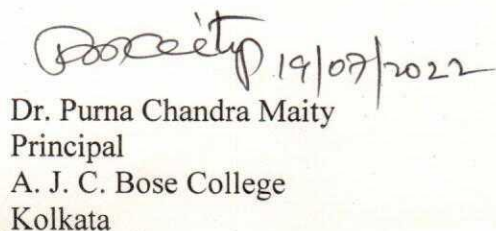 19/07/2022
Dr. Purna Chandra Maity
Principal
A. J. C. Bose College
Kolkata